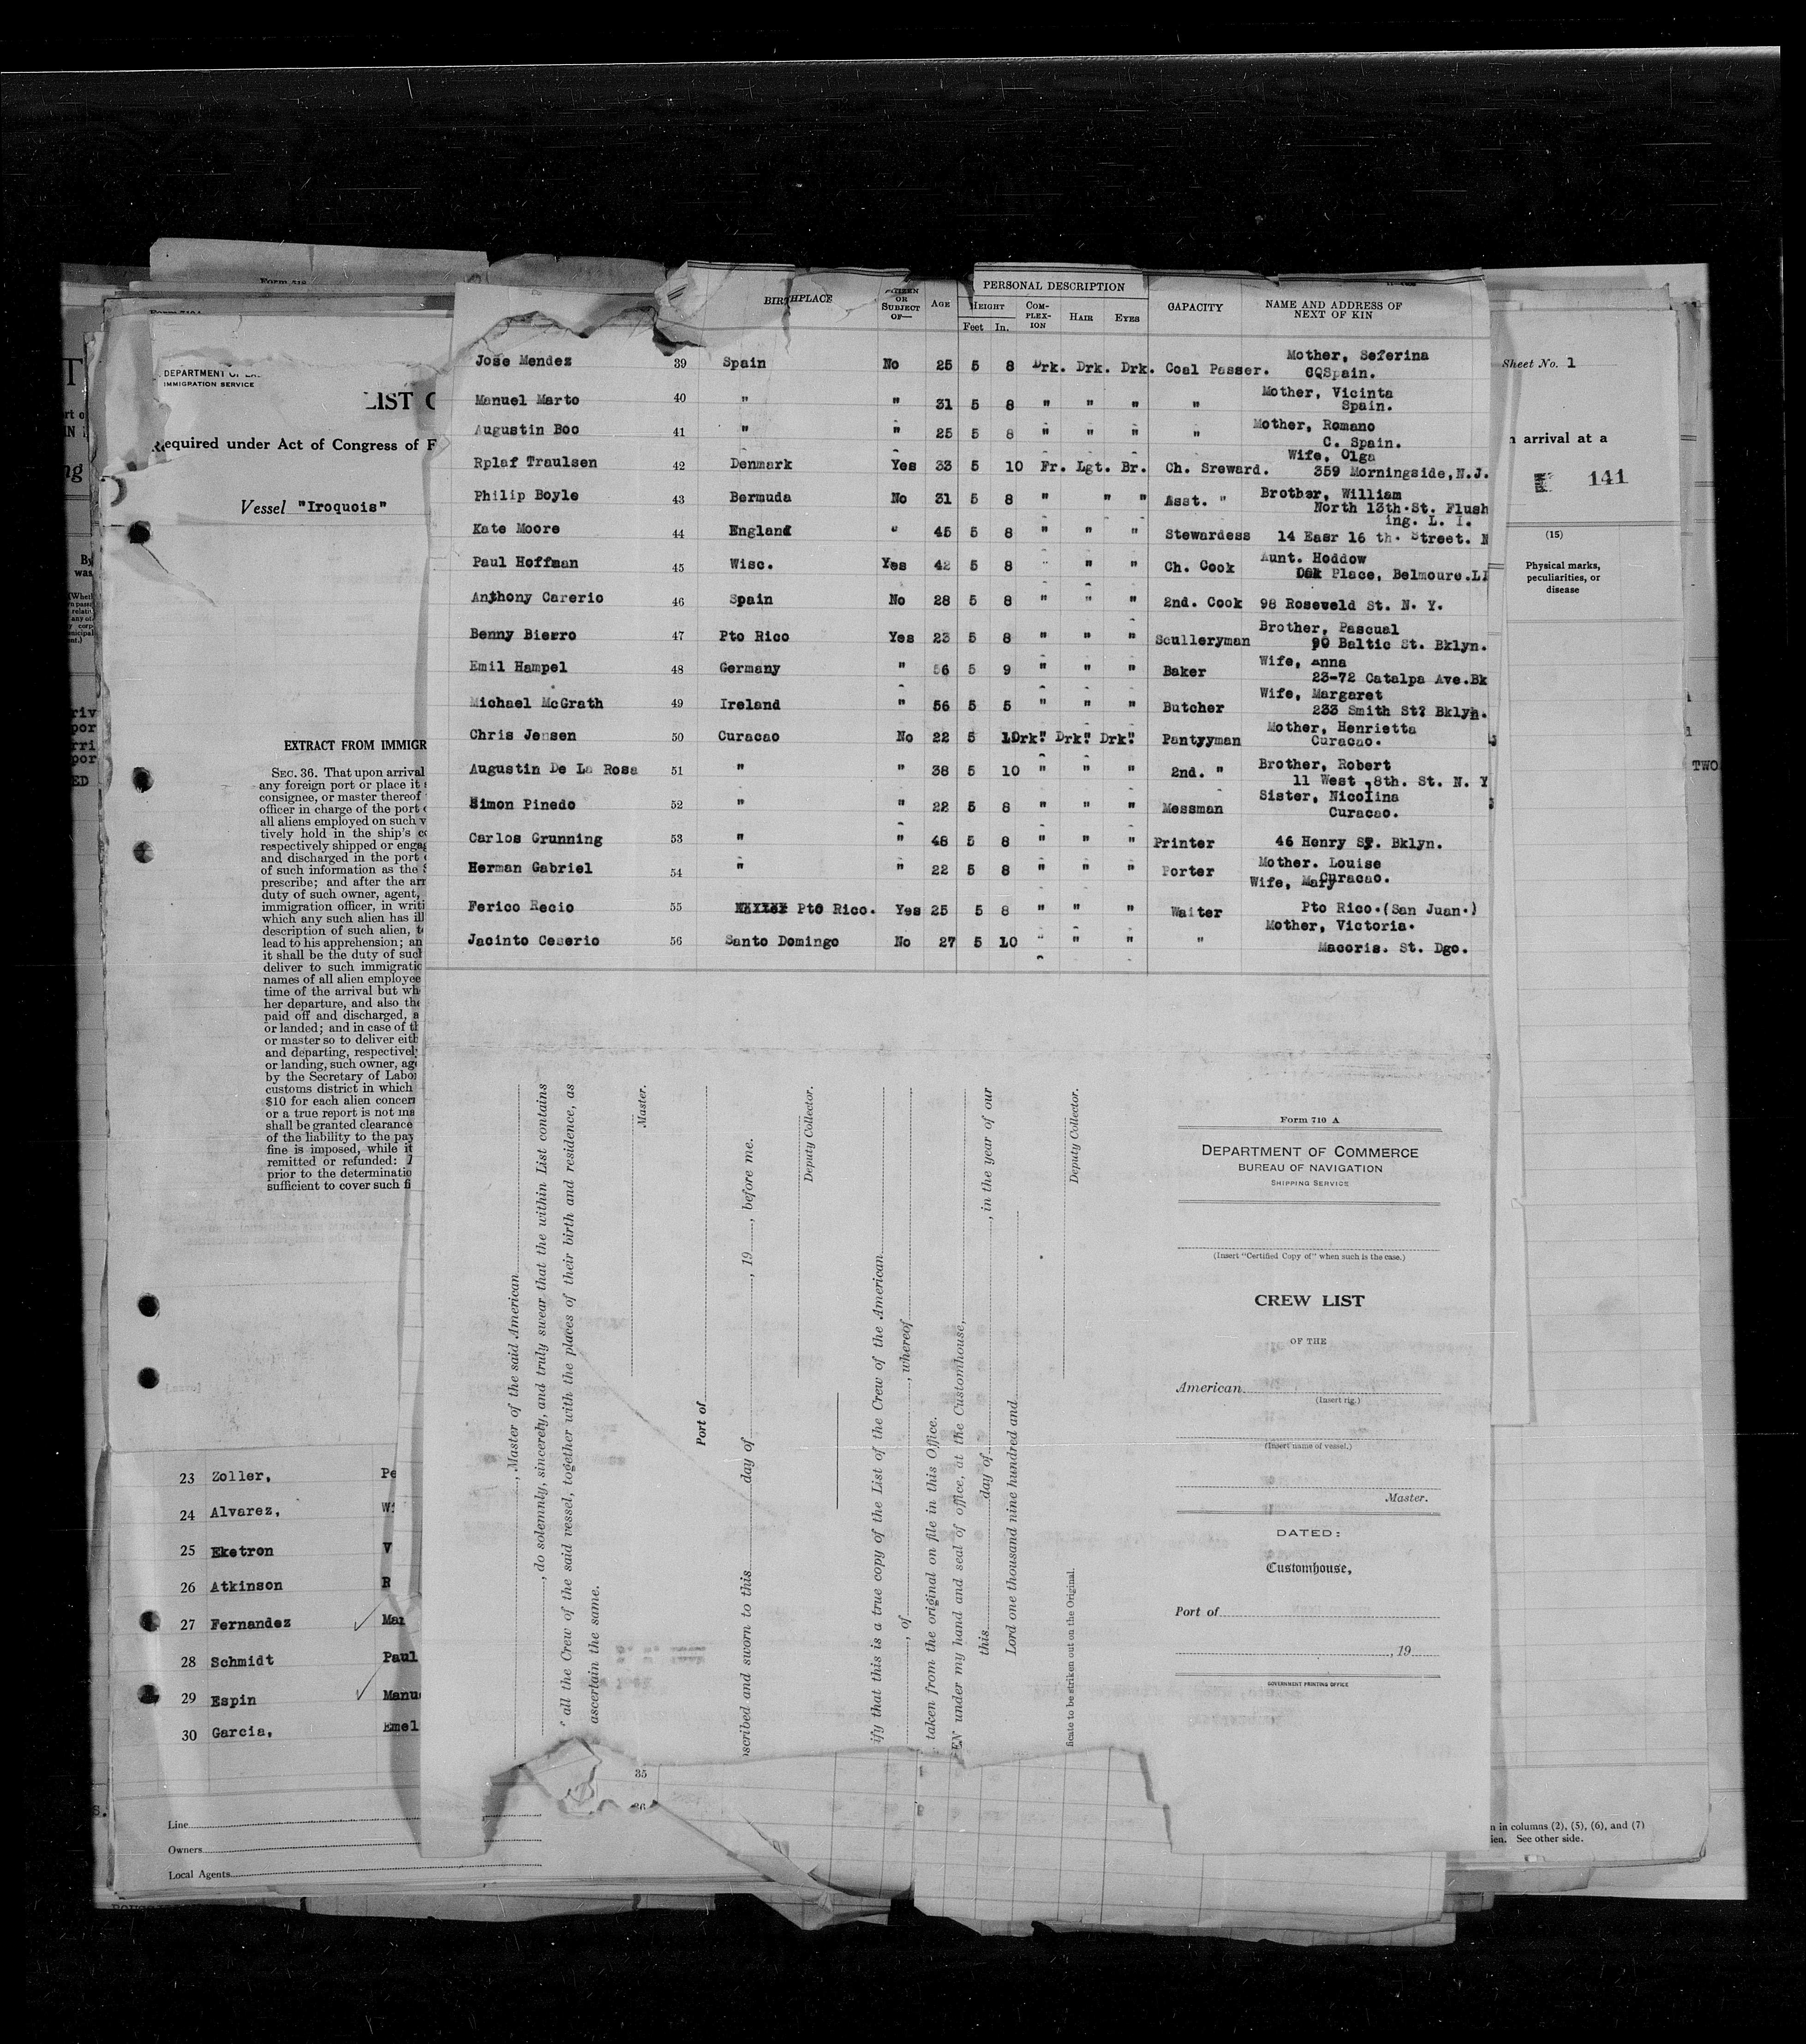 Form 710 A
DEPARTMENT OF
IMMIGRATION SERVICE
LIST
Required under Act of Congress of
Vessel "Iroquois"
EXTRACT FROM IMMIGR
SEC. 36. That upon arrival
any foreign port or place it
consignee, or master thereof
officer in charge of the port
all aliens employed on such v
tively hold in the ship's
respectively shipped or engag
and discharged in the port
of such information as the
prescribe; and after the arr
duty of such owner, agent,
immigration officer, in writi
which any such alien has ill
description of such alien,
lead to his apprehension; an
it shall be the duty of such
deliver to such immigratio
names of all alien employee
time of the arrival but wh
her departure, and also the
paid off and discharged, a
or landed; and in case of th
or master so to deliver eith
and departing, respectively
or landing, such owner, age
by the Secretary of Labor
customs district in which
$10 for each alien concern
or a true report is not ma
shall be granted clearance
of the liability to the pay
fine is imposed, while it
remitted or refunded:
prior to the determinatio
sufficient to cover such fi
23 Zoller, Pe
24 Alvarez, Wi
25 Eketron V
26 Atkinson R
27 Fernandez Mar
28 Schmidt Paul
29 Espin Manu
30 Garcia, Emel
Line
Owners
Local Agents
BIRTHPLACE CITIZEN OR SUBJECT OF— AGE PERSONAL DESCRIPTION CAPACITY NAME AND ADDRESS OF NEXT OF KIN
HEIGHT COM-PLEX-ION HAIR EYES
Feet In.
Jose Mendez 39 Spain No 25 5 8 Drk. Drk. Drk. Coal Passer. Mother, Seferina
CQSpain.
Manuel Marto 40 " " 31 5 8 " " " " Mother, Vicinta
Spain.
Augustin Boo 41 " " 25 5 8 " " " " Mother, Romano
C. Spain.
Rplaf Traulsen 42 Denmark Yes 33 5 10 Fr. Lgt. Br. Ch. Sreward. Wife, Olga
359 Morningside,N.J.
Philip Boyle 43 Bermuda No 31 5 8 " " " Asst. " Brother, William
North 13th.St. Flush
ing. L. I.
Kate Moore 44 England " 45 5 8 " " " Stewardess 14 Easr 16 th. Street. N
Paul Hoffman 45 Wisc. Yes 42 5 8 " " " Ch. Cook Aunt. Hoddow
Place, Belmoure.LI
Anthony Carerio 46 Spain No 28 5 8 " " " 2nd. Cook 98 Roseveld St. N. Y.
Benny Bierro 47 Pto Rico Yes 23 5 8 " " " Sculleryman Brother, Pascual
90 Baltic St. Bklyn.
Emil Hampel 48 Germany " 56 5 9 " " " Baker Wife, Anna
23-72 Catalpa Ave.Bk
Michael McGrath 49 Ireland " 56 5 5 " " " Butcher Wife, Margaret
233 Smith St? Bklyn.
Chris Jensen 50 Curacao No 22 5 10 Drk" Drk" Drk" Pantyyman Mother, Henrietta
Curacao.
Augustin De La Rosa 51 " " 38 5 10 " " " 2nd. " Brother, Robert
11 West 18th. St. N. Y
Simon Pinedo 52 " " 22 5 8 " " " Messman Sister, Nicolina
Curacao.
Carlos Grunning 53 " " 48 5 8 " " " Printer 46 Henry St. Bklyn.
Herman Gabriel 54 " " 22 5 8 " " " Porter Mother. Louise
Curacao.
Wife, Mary
Ferico Recio 55 Pto Rico. Yes 25 5 8 " " " Waiter Pto Rico.(San Juan.)
Jacinto Ceserio 56 Santo Domingo No 27 5 10 " " " " Mother, Victoria.
Macoris. St. Dgo.
, Master of the said American
, do solemnly, sincerely, and truly swear that the within List contains
all the Crew of the said vessel, together with the places of their birth and residence, as
ascertain the same.
Master.
Port of
scribed and sworn to this day of , 19 , before me.
Deputy Collector.
ify that this is a true copy of the List of the Crew of the American
, of , whereof
taken from the original on file in this Office.
EN under my hand and seal of office, at the Customhouse,
this day of , in the year of our
Lord one thousand nine hundred and
Deputy Collector.
ficate to be striken out on the Original.
Form 710 A
DEPARTMENT OF COMMERCE
BUREAU OF NAVIGATION
SHIPPING SERVICE
(Insert "Certified Copy of" when such is the case.)
CREW LIST
OF THE
American
(Insert rig.)
(Insert name of vessel.)
Master.
DATED:
Customhouse,
Port of
, 19
GOVERNMENT PRINTING OFFICE
35
36
Sheet No. 1
arrival at a
141
(15)
Physical marks,
peculiarities, or
disease
TWO
n in columns (2), (5), (6), and (7)
ien. See other side.